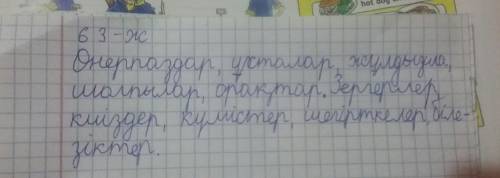 hot dog
63-ж
Өнерпаздар, ұсталар, жұлдызла,
шалғылар, орақтар. Зергерлер,
кпіздер, күмістер, шегірткелер, біле-
зіктер.